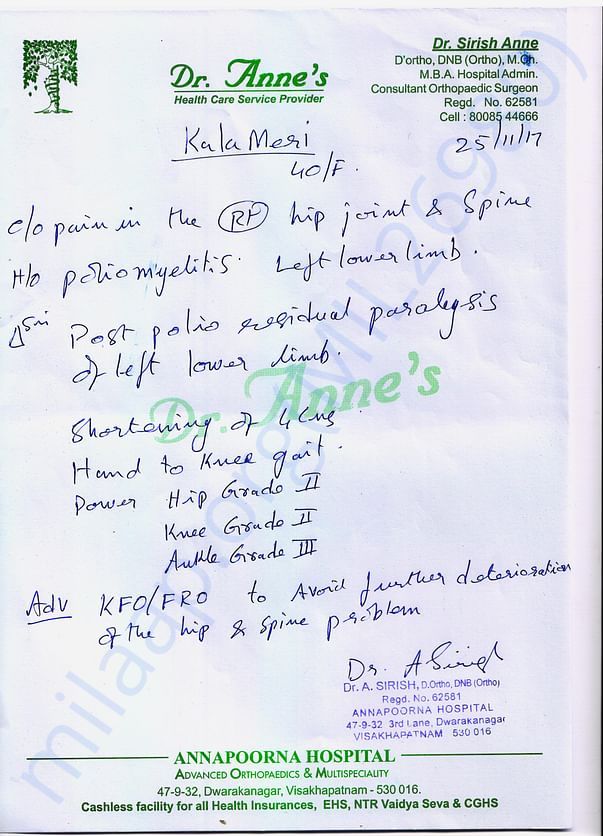 Dr. Sirish Anne
D'ortho, DNB (Ortho), M.Ch.
M.B.A. Hospital Admin.
Consultant Orthopaedic Surgeon
Regd. No. 62581
Cell : 80085 44666
Dr. Anne's
Health Care Service Provider
Kala Meri
40/F.
25/11/17
c/o pain in the Rt hip joint & Spine
H/o poliomyelitis. Left lower limb.
Δsis Post polio residual paralysis
of left lower limb.
Dr. Anne's
Shortening of 4 cms
Hand to Knee gait.
Power Hip Grade II
Knee Grade II
Ankle Grade III
Adv KFO/FRO to Avoid further deterioration
of the hip & spine problem
Dr. A Sirish
Dr. A. SIRISH, D.Ortho, DNB (Ortho)
Regd. No. 62581
ANNAPOORNA HOSPITAL
47-9-32 3rd Lane, Dwarakanagar
VISAKHAPATNAM 530 016
ANNAPOORNA HOSPITAL
ADVANCED ORTHOPAEDICS & MULTISPECIALITY
47-9-32, Dwarakanagar, Visakhapatnam - 530 016.
Cashless facility for all Health Insurances, EHS, NTR Vaidya Seva & CGHS